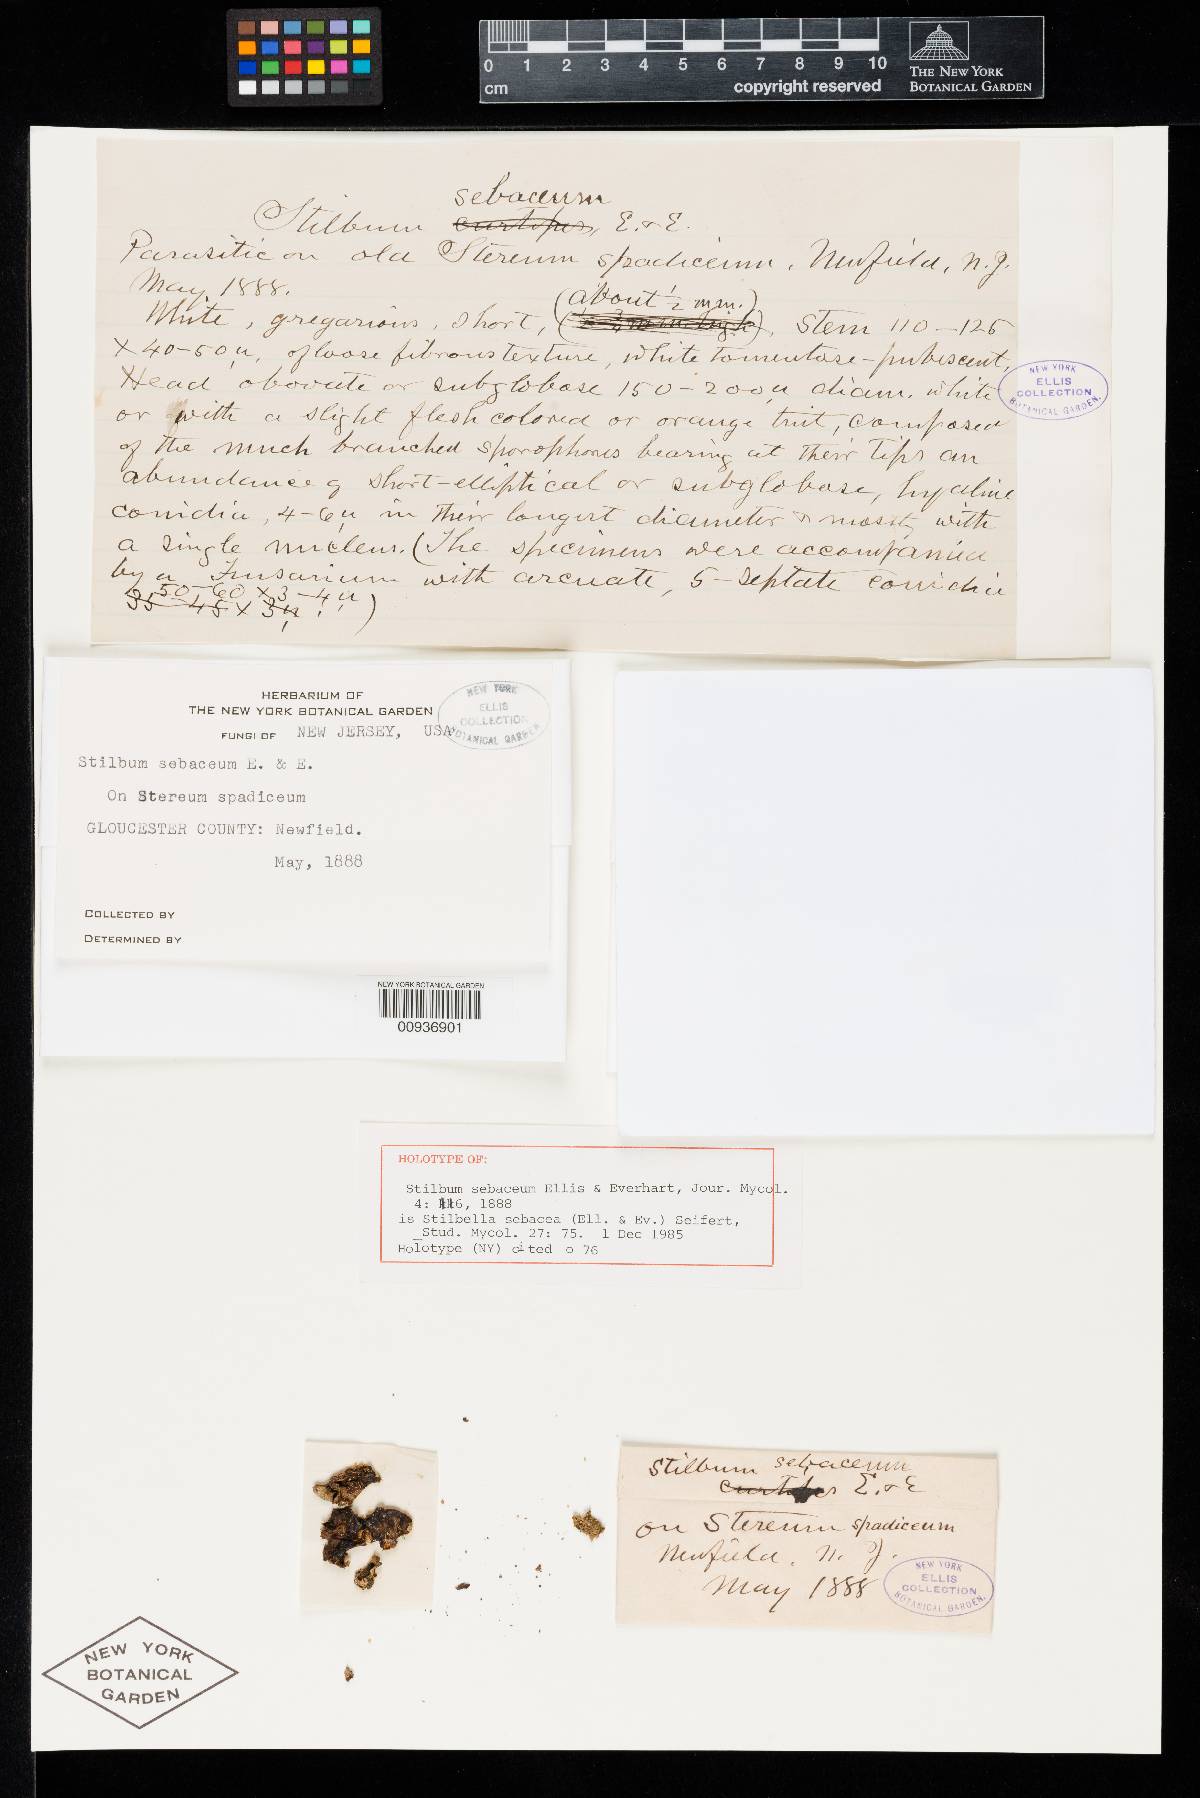 0 1 2 3 4 5 6 7 8 9 10
cm
copyright reserved
THE NEW YORK
BOTANICAL GARDEN
Stilbum sebaceum
curtipes, E. & E.
Parasitic on old Stereum spadiceum. Newfield, N.J.
May 1888.
White, gregarious, short, (about ½ mm.) Stem 110-125
× 40-50 µ, of loose fibrous texture, white tomentose-pubescent,
Head obovate or subglobose 150-200 µ diam. white
or with a slight flesh colored or orange tint, composed
of the much branched sporophores bearing at their tips an
abundance of short-elliptical or subglobose, hyaline
conidia, 4-6 µ in their longest diameter & mostly with
a single nucleus. (The specimens were accompanied
by a Fusarium with arcuate, 5-septate conidia
50-60 × 3-4 µ
35 45 × 3 µ )
NEW YORK
ELLIS
COLLECTION
BOTANICAL GARDEN.
HERBARIUM OF
THE NEW YORK BOTANICAL GARDEN
FUNGI OF NEW JERSEY, USA
NEW YORK
ELLIS
COLLECTION
BOTANICAL GARDEN
Stilbum sebaceum E. & E.
On Stereum spadiceum
GLOUCESTER COUNTY: Newfield.
May, 1888
COLLECTED BY
DETERMINED BY
NEW YORK BOTANICAL GARDEN
00936901
HOLOTYPE OF:
Stilbum sebaceum Ellis & Everhart, Jour. Mycol.
4: 116, 1888
is Stilbella sebacea (Ell. & Ev.) Seifert,
Stud. Mycol. 27: 75. 1 Dec 1985
Holotype (NY) cited o 76
Stilbum sebaceum
curtipes E. & E
on Stereum spadiceum
Newfield. N. J.
May 1888
NEW YORK
ELLIS
COLLECTION
BOTANICAL GARDEN.
NEW YORK
BOTANICAL
GARDEN